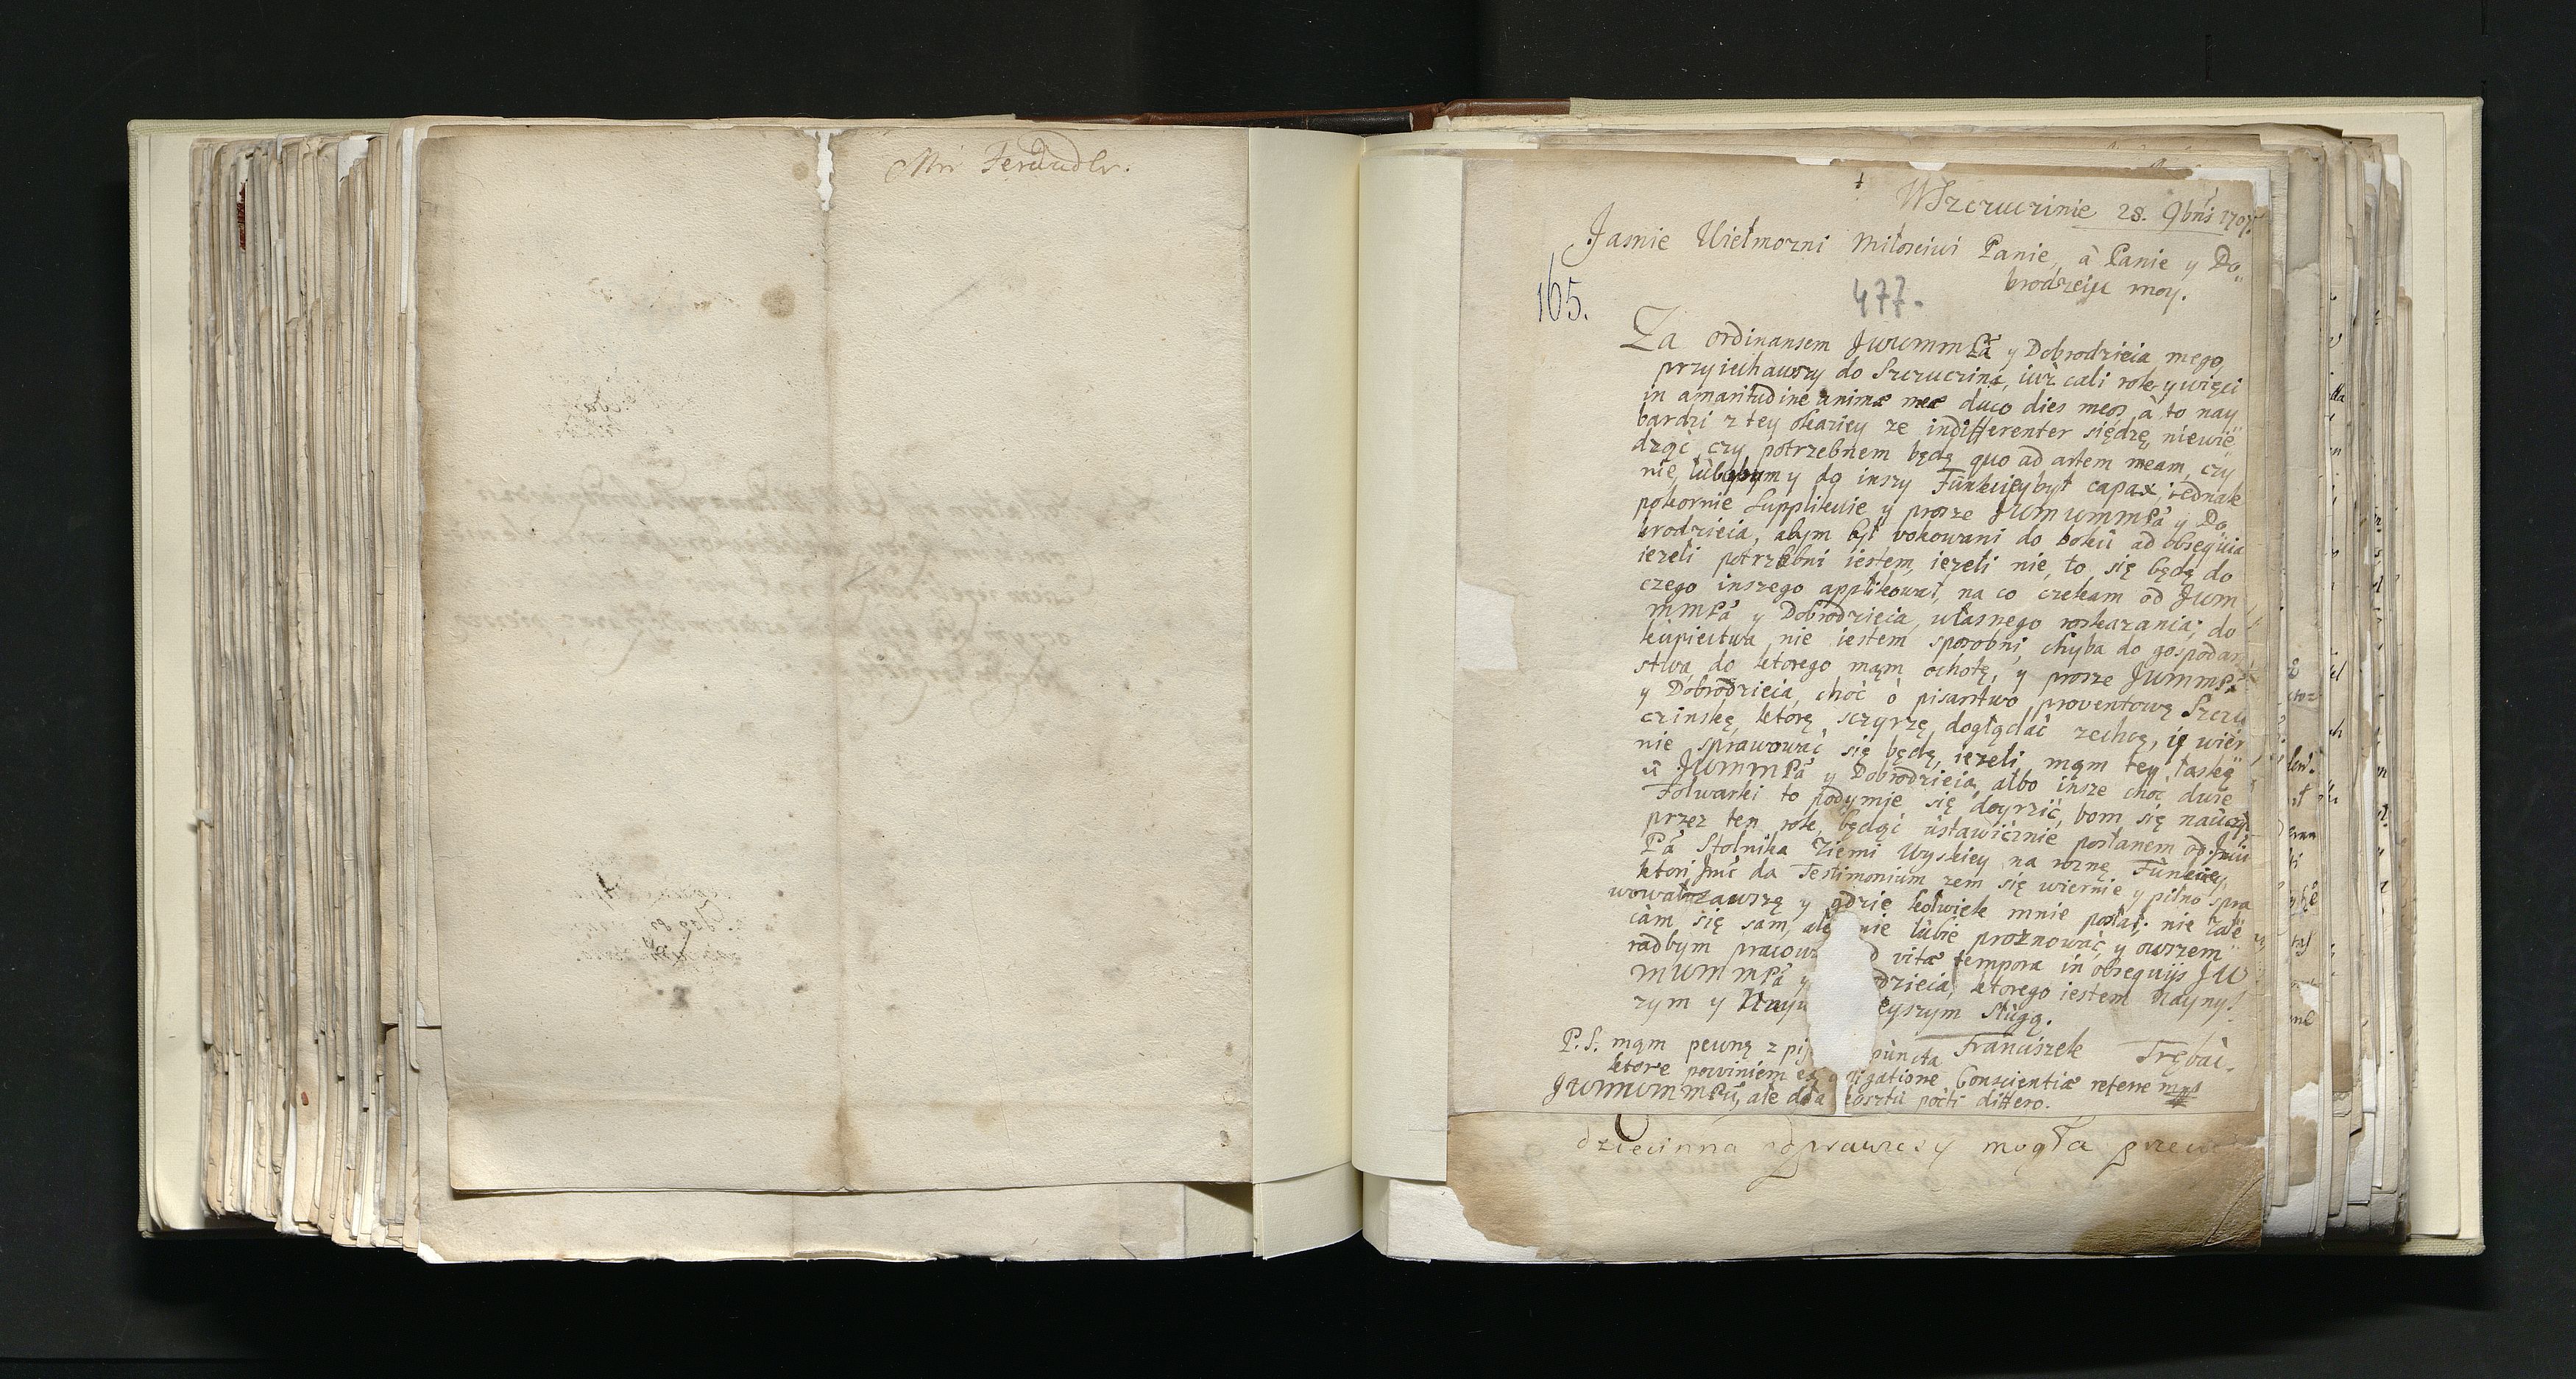 Mri
W Szczuczinie 28. 9bris 1707.
Jasnie Wielmozni Miłosciwi Panie, à Panie y Do„
brodzeiju moy.
165.
477.
Za ordinansem JWWMMPa y Dobrodzieia mego,
przyiechawszy do Szczuczina, iuż cali rok y więci
in amaritudine animæ meæ duco dies meos, à to nay
bardzi z tey okaziey ze indifferenter siędzę, niewie„
dząć czy potrzebnem będę quo ad artem meam, czy
nie, lubobym y do inszy Funkciey byt capax, iednak
pokornie supplikuie y prosze JWMWMMPa y Do
brodzieia, abym był wokowani do boku ad obsequia
iezeli potrzebni iestem, iezeli nie, to się będę do
czego inszego applikował, na co czekam od JWM
MMPa y Dobrodzieia, własnego roskazania; do
kupiectwa nie iestem sposobni, chyba do gospodar
stwa, do ktorego mąm ochotę, y prosze JWMMPa
y Dobrodzieia, choć ò pisarstwo proventowę Szczu
czinskę, ktorę sczyrzę doglądać zechcę, ię wier
nie sprawować się będę, iezeli mąm tey łaskę„
u JWMMPa y Dobrodzieia, albo insze choc dwie
Folwarki to podymie się doyrzić, bom się nauczył
przez ten rok, będąć ustawicznie posłanem od Jmci
Pa Stolnika Ziemi Wyskiey na roznę Funkcię,
ktori Jmć da Testimonium zem się wiernie y pilno spra
wował zawszę y gdzie kolwiek mnie posłał; nie zale
càm się sam, ale nie lubię proznować, y owszem„
radbym pracow d vitæ tempora in obsequijs JW
MWMMPa y dzieia, ktorego iestem Nayny
zym y Unyu eyszym sługą.
Franciszek Trębac.
P.S. mąm pewnę z pi puncta
ktore powiniem ex igatione Conscientiæ referre
JWMWMMPu, ale dla kosztu poćti differo.
dziecinna odprawisy mogła